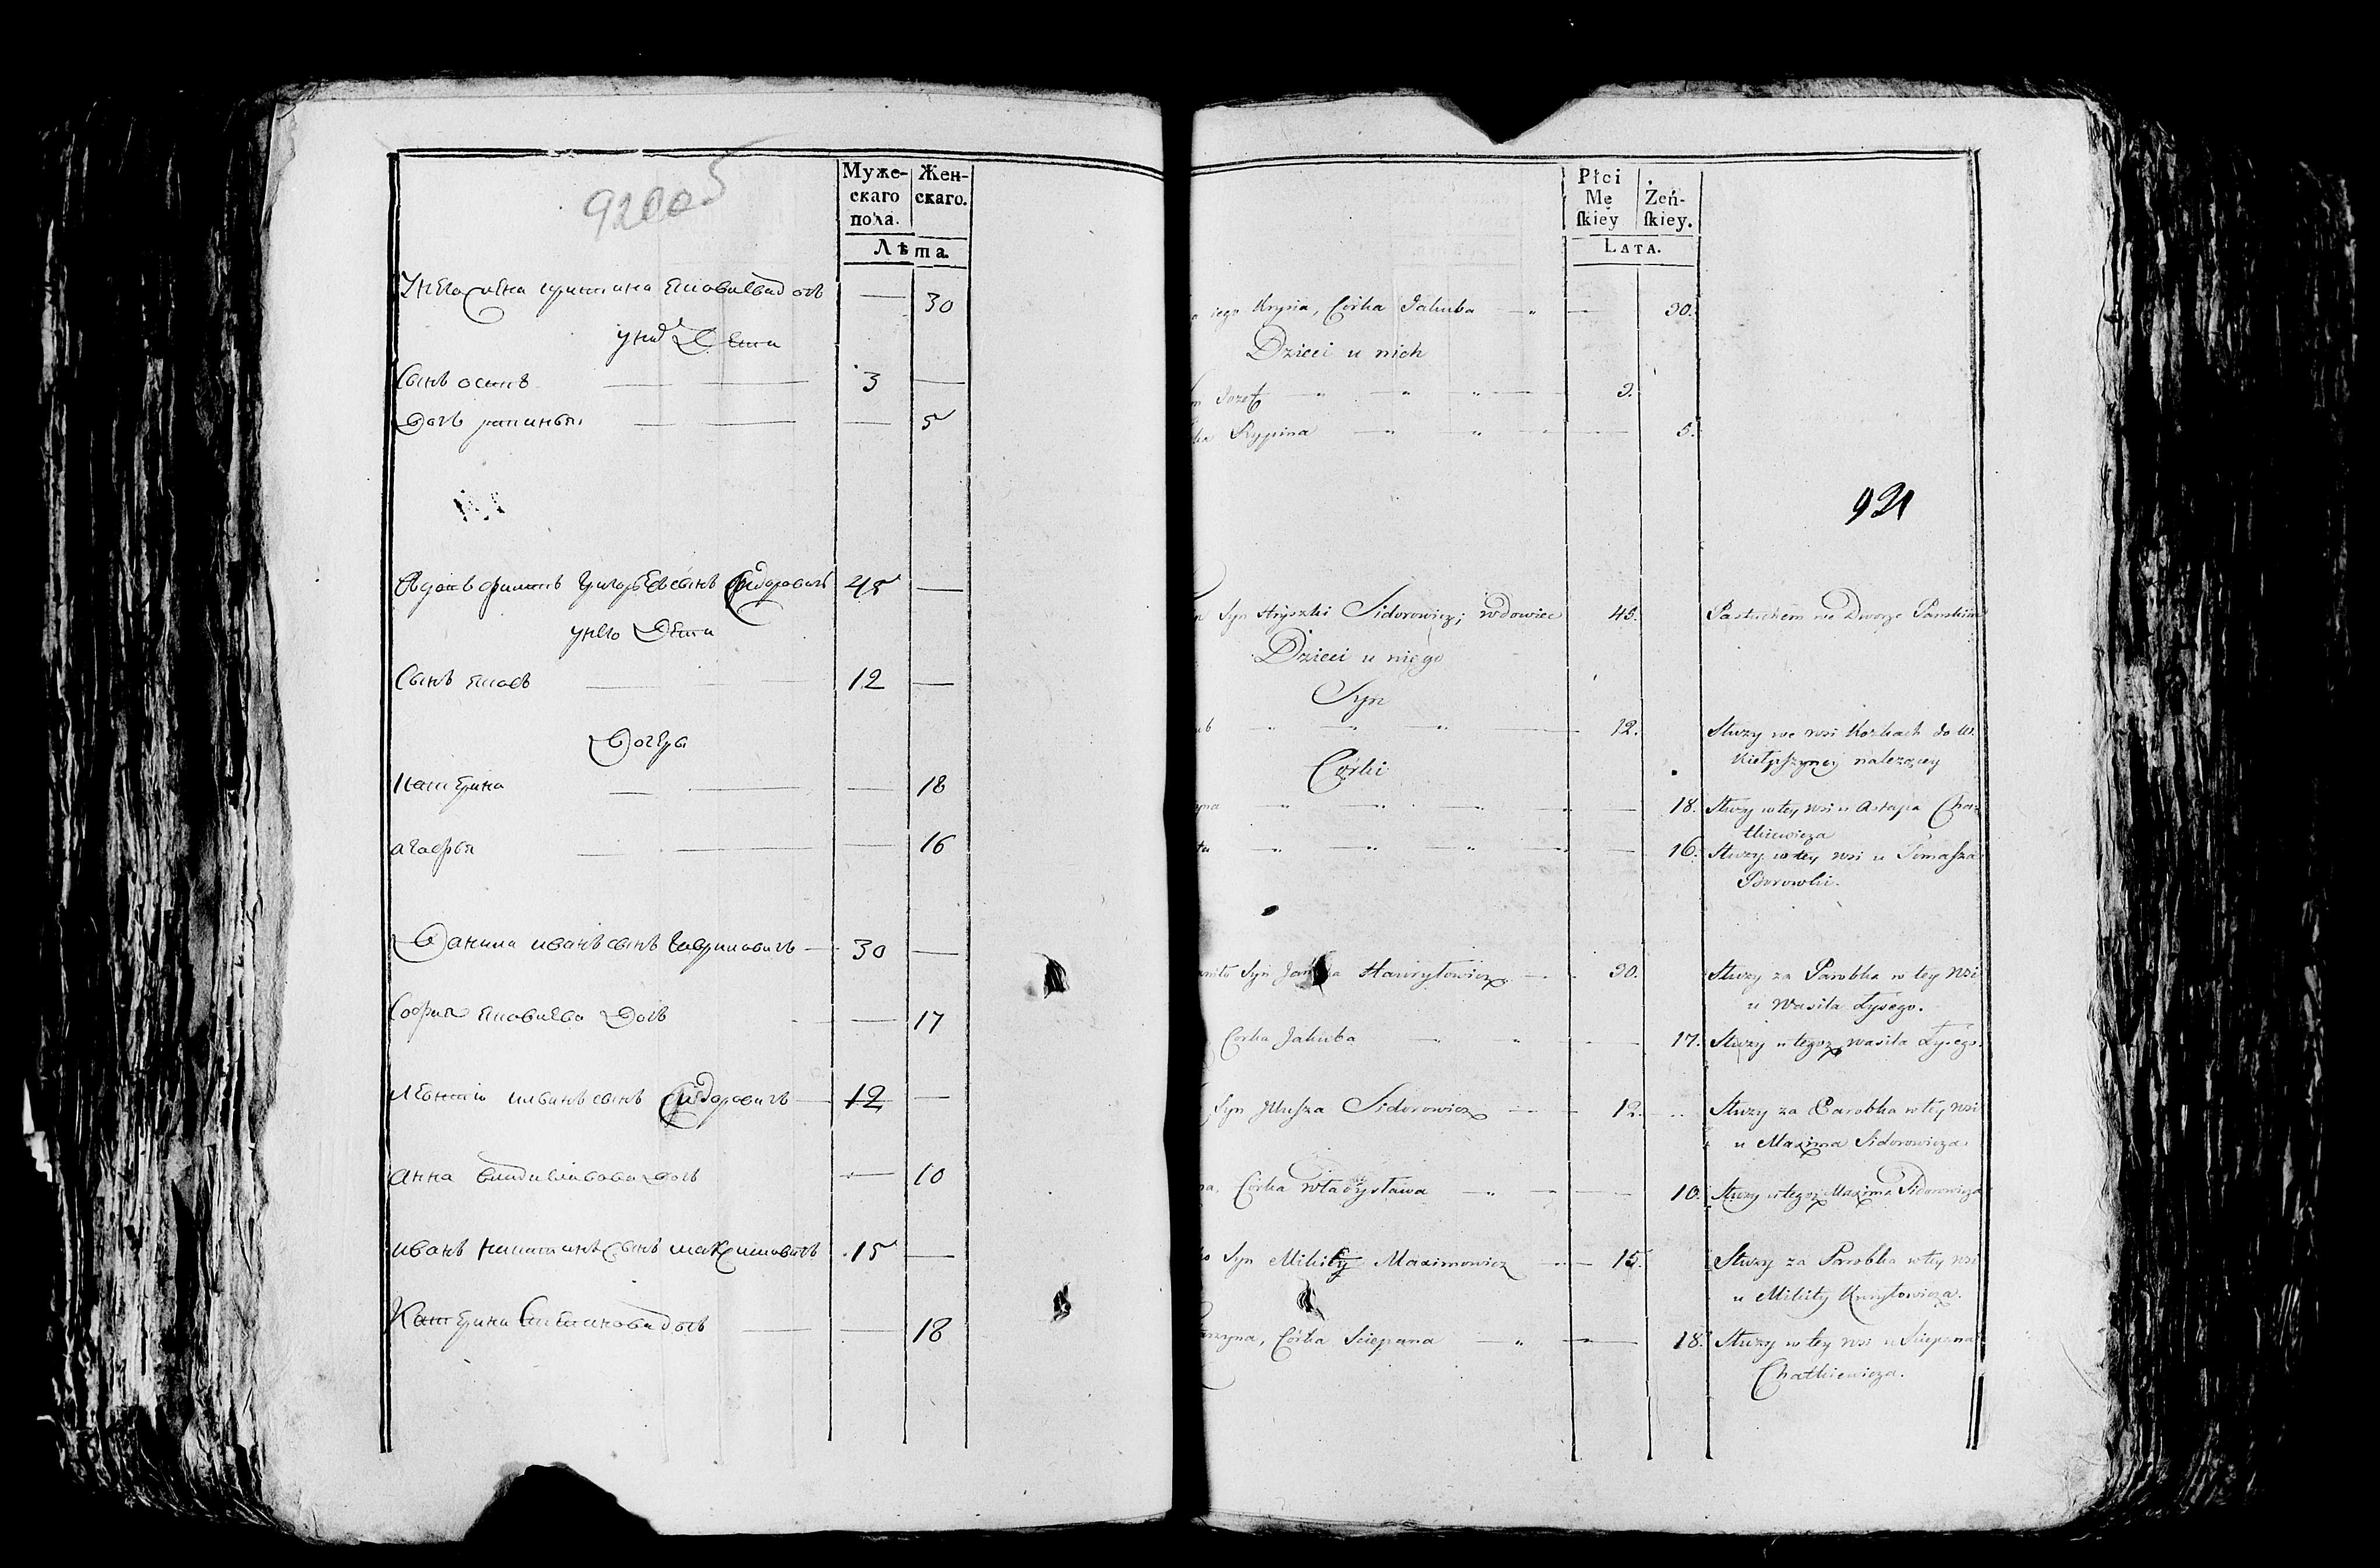 92005
Муже-
скаго
пола.
Жен-
скаго.
Лѣта.
Унего жена кристина яковлева дочь — 30
у них Дети
Сынъ осипъ — — 3 —
Дочь рапинья — — — 5
Вдовъ филипъ Григорьевъ сынъ Сидоровичъ 45 —
унего Дети
Сынъ яковъ — — 12 —
Дочери
катерина — — — 18
агафья — — — 16
Данила иванъ сынъ Гаврилович — 30 —
София яковлева Дочь — 17
илья сынъ Сидоровичъ — 12 —
анна владиславова дочь — 10
иванъ сынъ максимовичъ 15 —
Катерина Степанова дочь — — 18
Płci
Mę
ſkiey
Żeń-
ſkiey.
LATA.
iego Krysia, Córka Jakuba — " — 30.
Dzieci u nich
Jozef — " — " — " — 3.
Rypina — " — " — " — 5.
921
Syn Hryszki Sidorowicz; wdowiec 45. Pastuchem we Dworze Pańskim
Dzieci u niego
Syn
ub — " — " — " — 12. Służy we wsi Kozkach do W.
Kiełpszyney należącey
Córki
yna — " — " — " — 18. Służy w tey wsi u Astapa Chat-
kiewicza
ta — " — " — " — 16. Służy w tey wsi u Tomasza
Borowki.
aniło Syn Janka Hawryłowicz — 30. Służy za Parobka w tey wsi
u Wasila Łysego.
Corka Jakuba — " — " — 17. Służy u tegoż Wasila Łysego.
Syn Jllusza Sidorowicz — 12. Służy za Parobka w tey wsi
u Maxima Sidorowicza.
na, Córka Władysława — " — 10. Służy u tegoż Maxima Sidorowicza
Syn Mikity Maximowicz — 15. Służy za Parobka w tey wsi
u Mikity Kuryłowicza.
arzyna, Córka Sciepana — " — 18. Służy w tey wsi u Sciepana
Chatkiewicza.